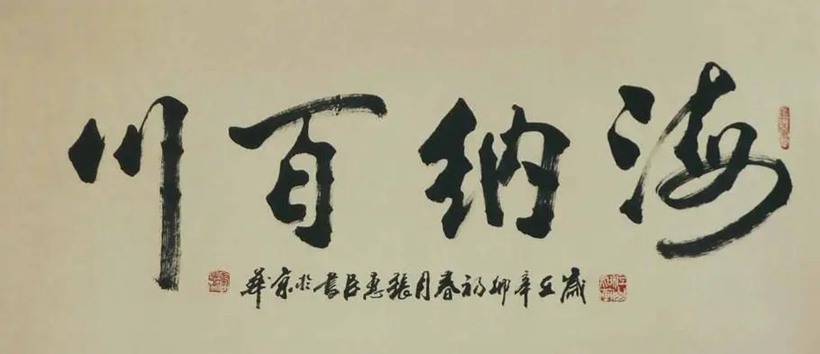 海纳百川
歲在辛卯初春月張惠臣書於京華